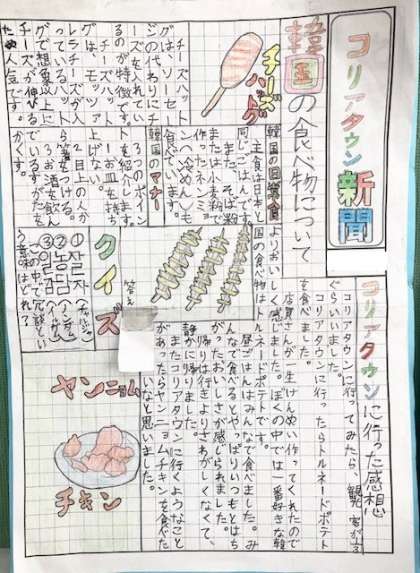 コリアタウン新聞
韓国の食べ物について
チーズハットグ
チーズハット
グは、ソーセー
ジの代わりにチ
ーズを入れてい
るのが特徴です。
チーズハット
グは、モッツァ
レラチーズが入
っているハット
グで想像以上に
チーズが伸びる
ため人気です。
韓国の日常食
主食は日本と
同じごはんです。
また、そば粉
または小麦粉で
作ったネンミョ
ンへ冷めんも
食べています。
韓国のマナー
3つのポイン
トを紹介します。
1お皿を持ち
上げない
2目上の人か
ら箸をつける。
3お酒を飲ん
でいるすがたを
かくす。
クイズ
答え
①자
②농담
③일감
この中で冗談とい
う意味はどれ?
コリアタウンに行った感想
コリアタウンに行ってみたら、観客が
ぐらいいました。
コリアタウンに行ったらトルネードポテト
を食べました。
店員さんが一生けんめい作ってくれたので
よりおいしく感じました。ぼくの中では一番好きな韓
国の食べ物はトルネードポテトです。
昼ごはんはみんなで食べました。み
んなで食べるとやっぱりいつもとはち
がったおいしさが感じられました。
帰りは行きよりさわがしくなくて、
静かに帰りました。
またコリアタウンに行くようなこと
があったらヤンニョムチキンを食べた
いなと思いました。
ヤンニョム
チキン